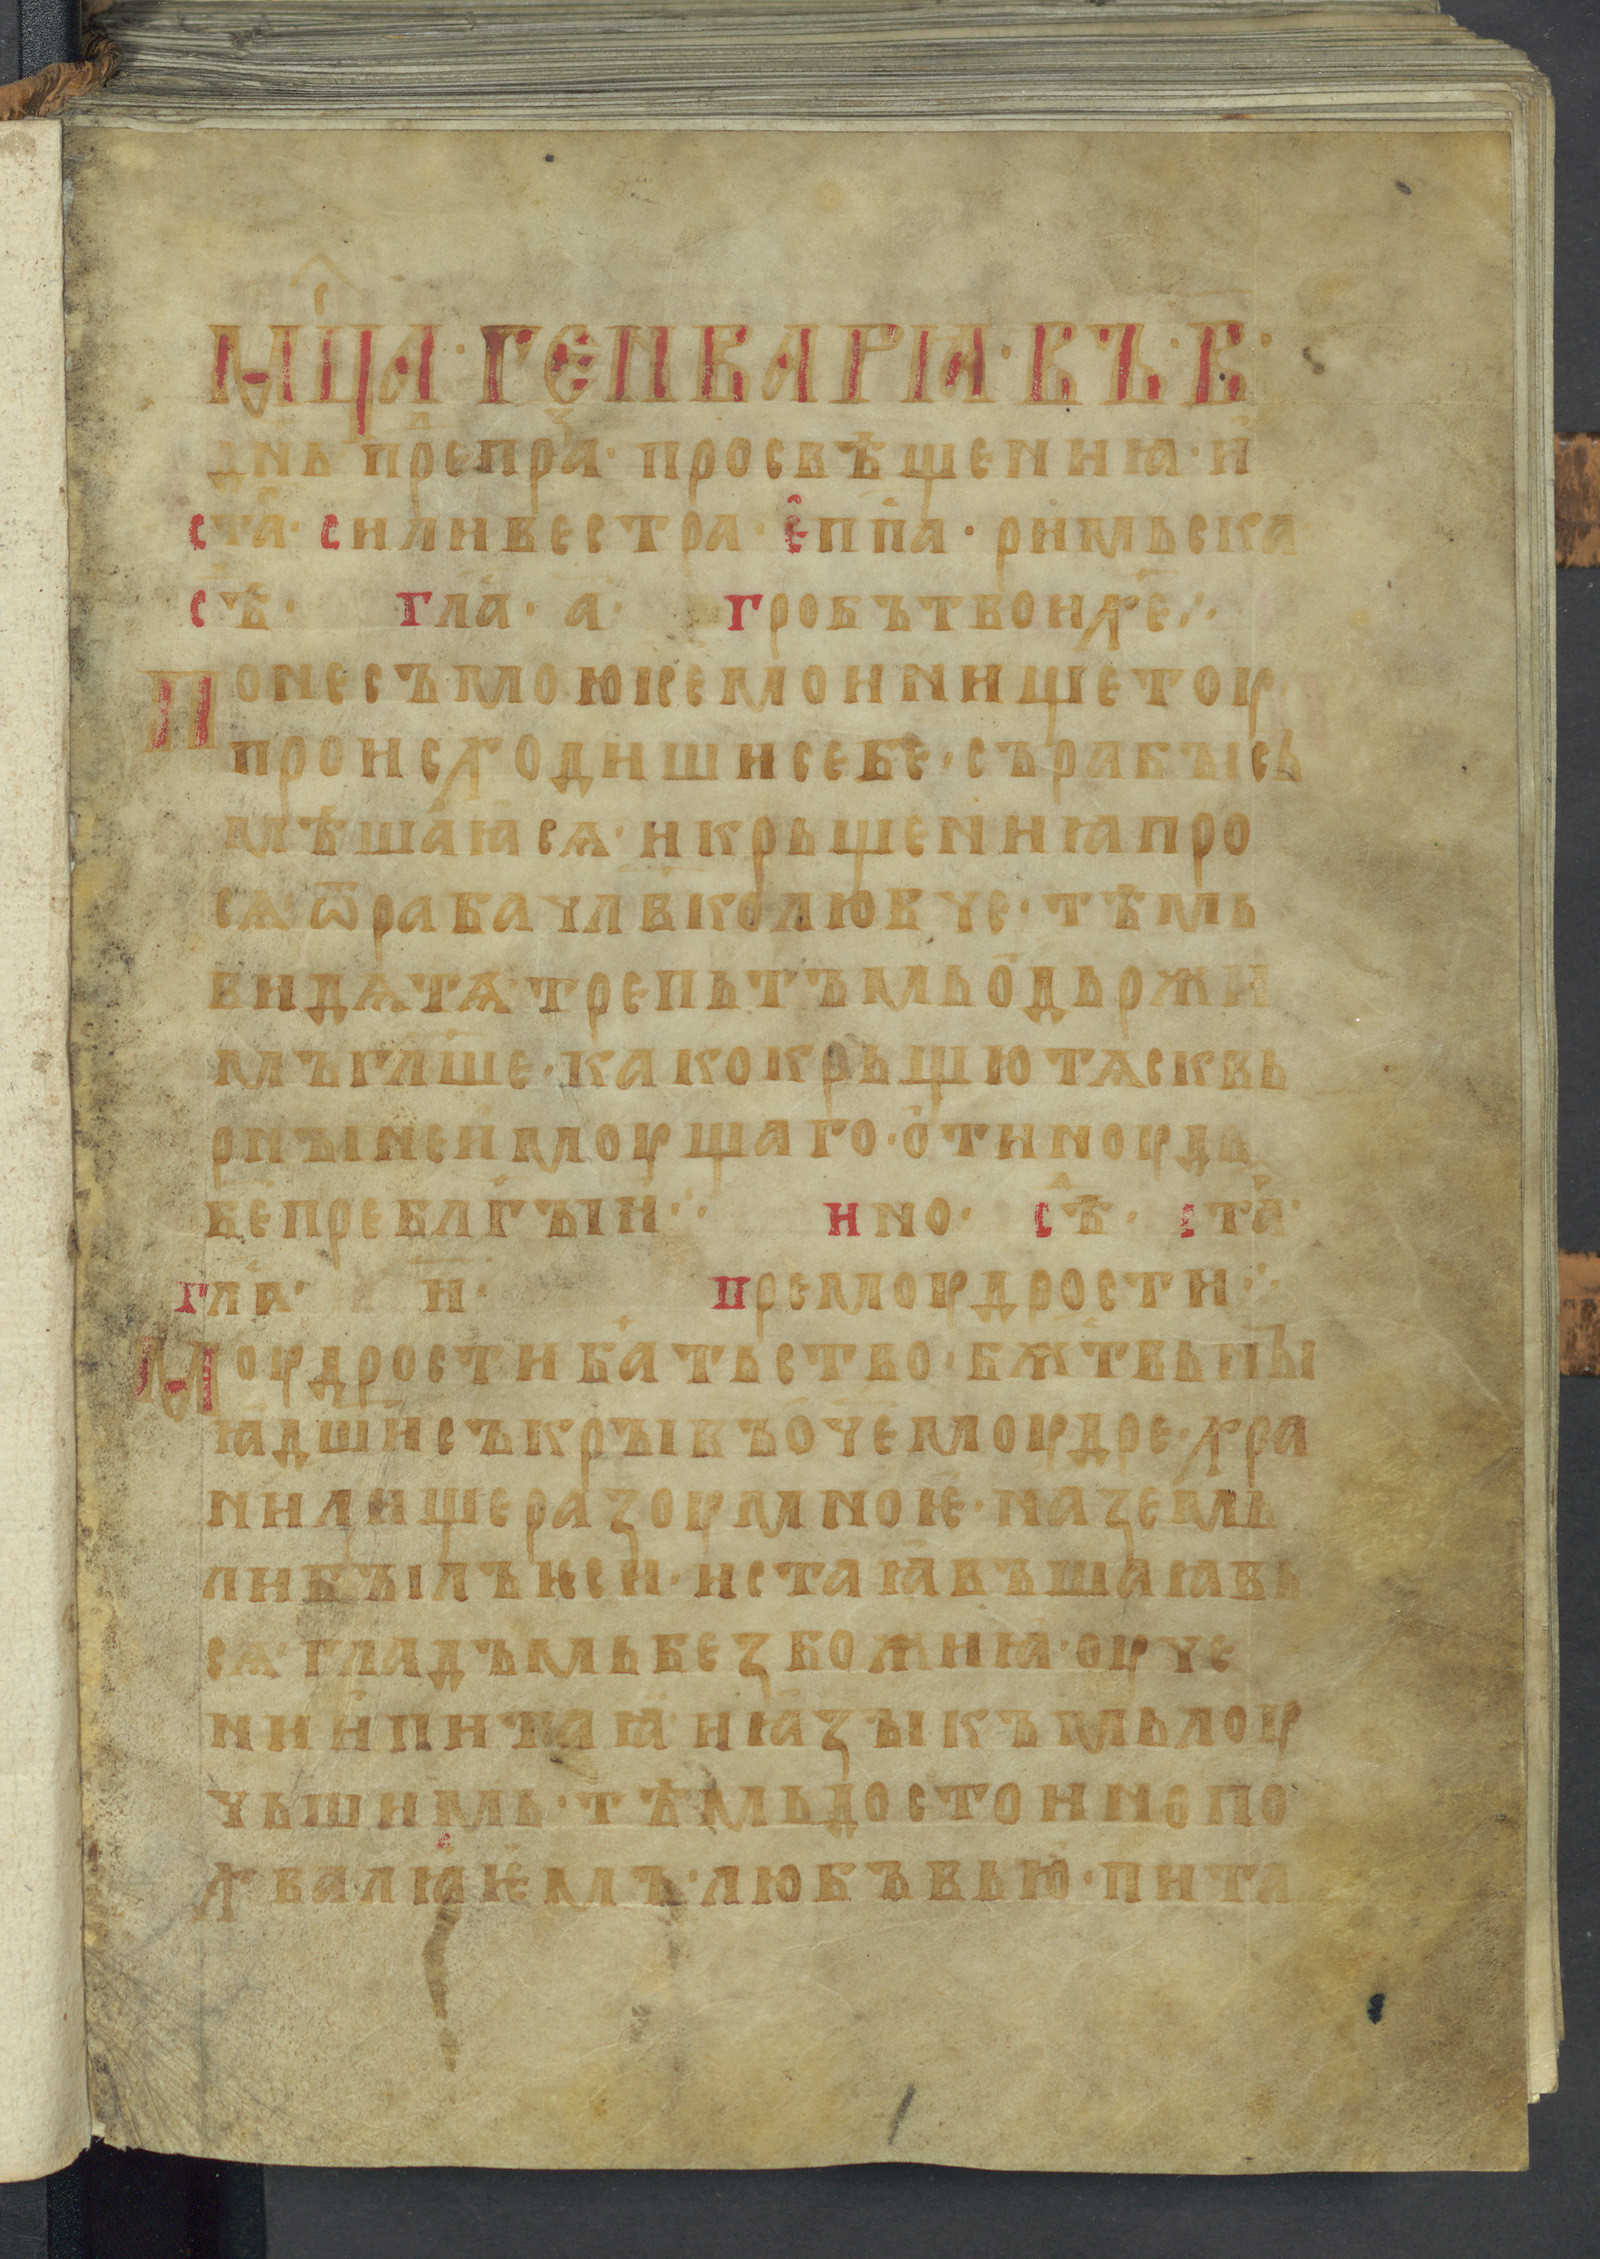 мⷭ҇ца · генварꙗ · въ · в ·
дн҃ь прⷣепраꙁ · просвѣщениꙗ · и
ст҃а · силивестра · еп҃па · римьска
сѣⷣ · гла҃ · а҃ · гробътвоихе ⁘
Понесъмоюкемоинищетоу
происходишисебе · сърабꙑсь
мѣшаꙗсѧ · икрьщениꙗпро
сѧѿрабачл҃вколюбче · тѣмь
видѧтѧтрепьтъмьодьржи
мъгл҃ше · какокрьщютѧсквь
рнꙑнеимоущаго · отиноуда
бепребл҃гꙑи ⁘ ино · сѣⷣ · стаⷢ ·
гла҃ · и҃ · премоудрости ⁘
Моудростибатьство · бж҃твьнꙑ
ꙗдшисъкрꙑвъоч҃емоудре · хра
нилищеразоумноѥ · наземь
либꙑлъѥси · истаꙗвъшаꙗвь
сѧ · гладъмьбезбожиꙗ · оуче
ниипитаꙗ · иꙗзꙑкъмьлоу
чьшимь · тѣмьдостоинопо
хвалꙗѥмъ · любъвью · пита